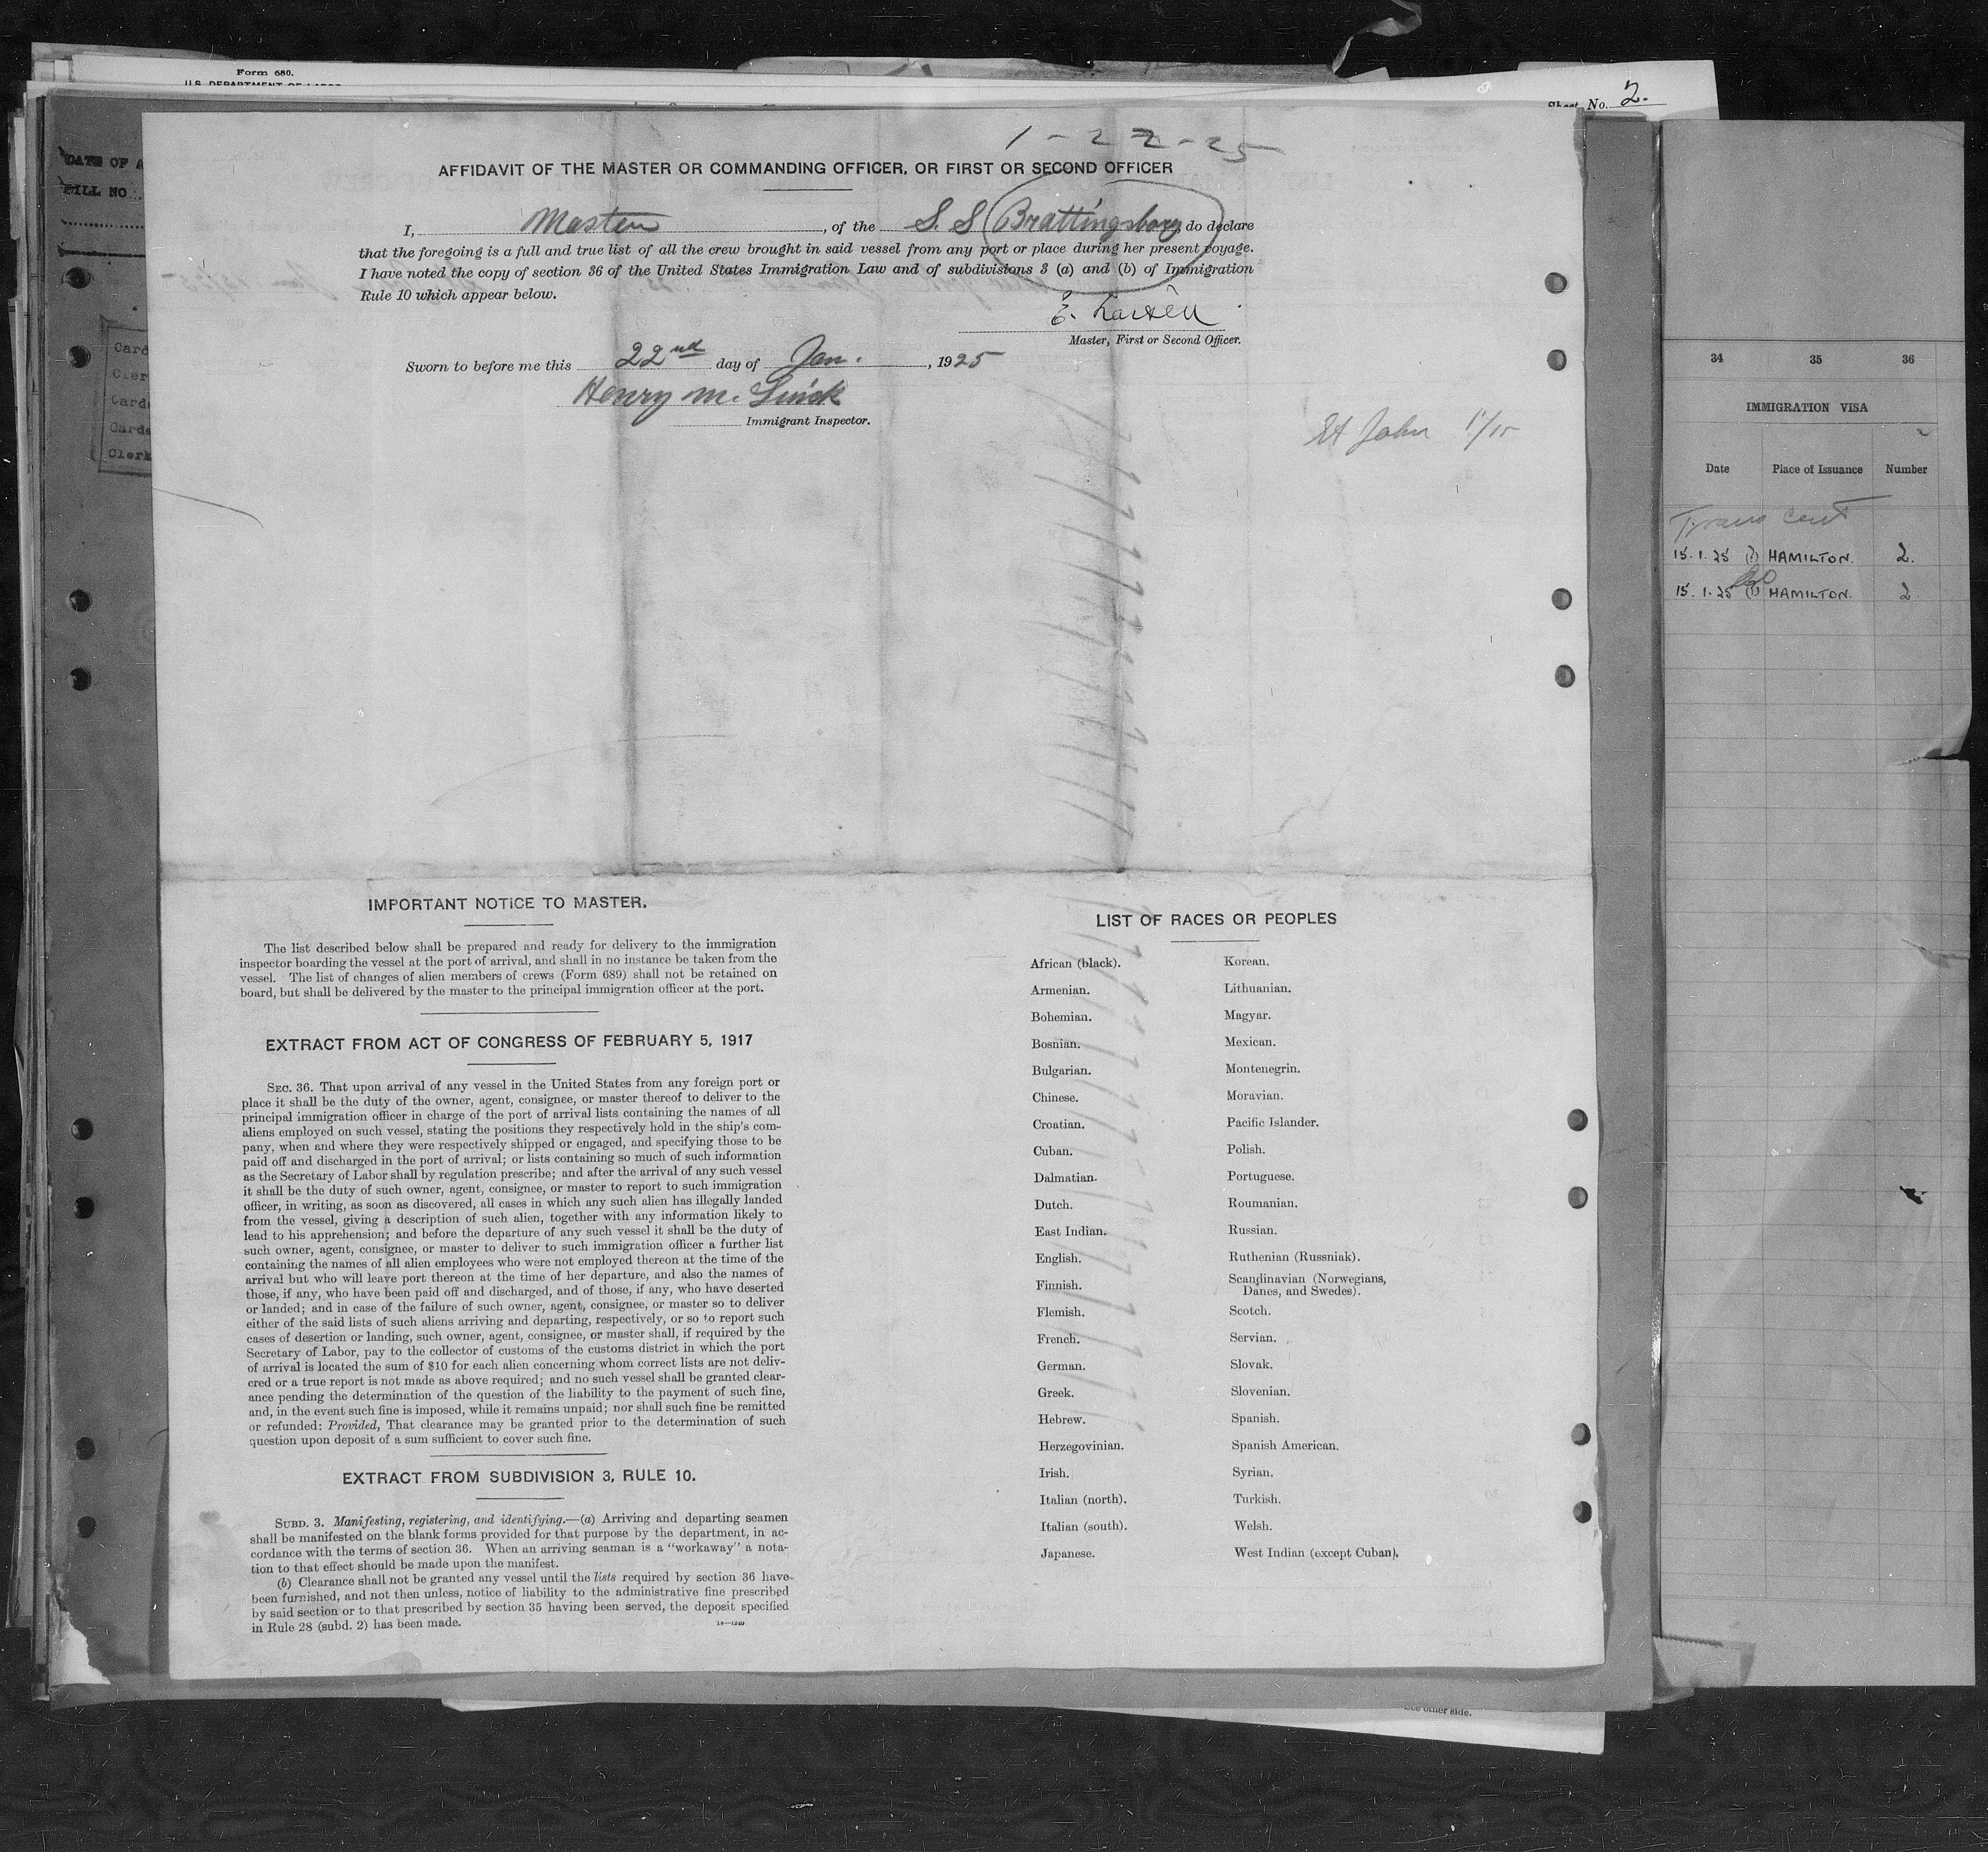 Form 680.
U.S. DEPARTMENT OF LABOR
Sheet No. 2.
DATE OF A
BILL NO
Card
Cler
Card
Card
Clerk
1-22-25
AFFIDAVIT OF THE MASTER OR COMMANDING OFFICER, OR FIRST OR SECOND OFFICER
I, Master, of the S. S Brattingsborg, do declare
that the foregoing is a full and true list of all the crew brought in said vessel from any port or place during her present voyage.
I have noted the copy of section 36 of the United States Immigration Law and of subdivisions 3 (a) and (b) of Immigration
Rule 10 which appear below.
E. Larsen
Master, First or Second Officer.
Sworn to before me this 22nd day of Jan., 1925
Henry M.
Immigrant Inspector.
St John 1/15
IMPORTANT NOTICE TO MASTER.
The list described below shall be prepared and ready for delivery to the immigration
inspector boarding the vessel at the port of arrival, and shall in no instance be taken from the
vessel. The list of changes of alien members of crews (Form 689) shall not be retained on
board, but shall be delivered by the master to the principal immigration officer at the port.
EXTRACT FROM ACT OF CONGRESS OF FEBRUARY 5, 1917
SEC. 36. That upon arrival of any vessel in the United States from any foreign port or
place it shall be the duty of the owner, agent, consignee, or master thereof to deliver to the
principal immigration officer in charge of the port of arrival lists containing the names of all
aliens employed on such vessel, stating the positions they respectively hold in the ship's com-
pany, when and where they were respectively shipped or engaged, and specifying those to be
paid off and discharged in the port of arrival; or lists containing so much of such information
as the Secretary of Labor shall by regulation prescribe; and after the arrival of any such vessel
it shall be the duty of such owner, agent, consignee, or master to report to such immigration
officer, in writing, as soon as discovered, all cases in which any such alien has illegally landed
from the vessel, giving a description of such alien, together with any information likely to
lead to his apprehension; and before the departure of any such vessel it shall be the duty of
such owner, agent, consignee, or master to deliver to such immigration officer a further list
containing the names of all alien employees who were not employed thereon at the time of the
arrival but who will leave port thereon at the time of her departure, and also the names of
those, if any, who have been paid off and discharged, and of those, if any, who have deserted
or landed; and in case of the failure of such owner, agent, consignee, or master so to deliver
either of the said lists of such aliens arriving and departing, respectively, or so to report such
cases of desertion or landing, such owner, agent, consignee, or master shall, if required by the
Secretary of Labor, pay to the collector of customs of the customs district in which the port
of arrival is located the sum of $10 for each alien concerning whom correct lists are not deliv-
ered or a true report is not made as above required; and no such vessel shall be granted clear-
ance pending the determination of the question of the liability to the payment of such fine,
and, in the event such fine is imposed, while it remains unpaid; nor shall such fine be remitted
or refunded: Provided, That clearance may be granted prior to the determination of such
question upon deposit of a sum sufficient to cover such fine.
EXTRACT FROM SUBDIVISION 3, RULE 10.
SUBD. 3. Manifesting, registering, and identifying.—(a) Arriving and departing seamen
shall be manifested on the blank forms provided for that purpose by the department, in ac-
cordance with the terms of section 36. When an arriving seaman is a "workaway" a nota-
tion to that effect should be made upon the manifest.
(b) Clearance shall not be granted any vessel until the lists required by section 36 have
been furnished, and not then unless, notice of liability to the administrative fine prescribed
by said section or to that prescribed by section 35 having been served, the deposit specified
in Rule 28 (subd. 2) has been made.
14—1240
LIST OF RACES OR PEOPLES
African (black). Korean.
Armenian. Lithuanian.
Bohemian. Magyar.
Bosnian. Mexican.
Bulgarian. Montenegrin.
Chinese. Moravian.
Croatian. Pacific Islander.
Cuban. Polish.
Dalmatian. Portuguese.
Dutch. Roumanian.
East Indian. Russian.
English. Ruthenian (Russniak).
Finnish. Scandinavian (Norwegians,
Danes, and Swedes).
Flemish. Scotch.
French. Servian.
German. Slovak.
Greek. Slovenian.
Hebrew. Spanish.
Herzegovinian. Spanish American.
Irish. Syrian.
Italian (north). Turkish.
Italian (south). Welsh.
Japanese. West Indian (except Cuban).
See other side.
34 35 36
IMMIGRATION VISA
Date Place of Issuance Number
Trans Cert
15.1.25 HAMILTON. 2.
15.1.25 HAMILTON. 2